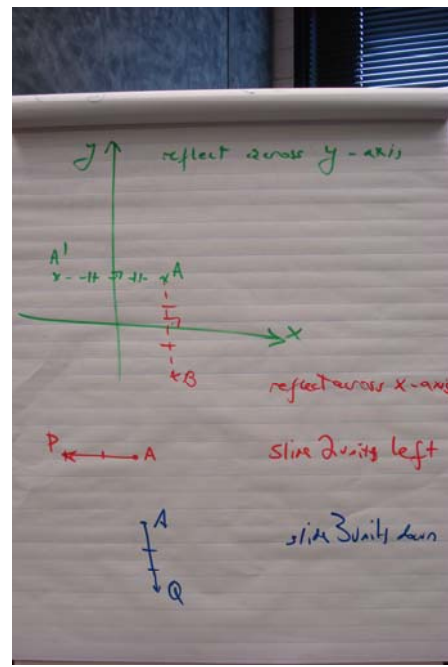 y reflect across y-axis
A'
A
x
B
reflect across x-axis
P A slide 2 units left
A slide 3 units down
Q